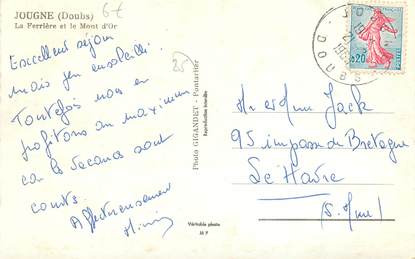 JOUGNE (Doubs)
La Ferrière et le Mont d'Or
6€
Excellent séjour
mais peu ensoleillé.
Toutefois nous en
profitons au maximum
car les vacances sont
courts.
Affectueusement
25
Photo GIGANDET - Pontarlier
Reproduction interdite
Véritable photo
M F
REPUBLIQUE FRANÇAISE
0,20
POSTES
DOUBS
Mr et Mme Jack
95 impasse de Bretagne
Le Havre
(S. Mme)